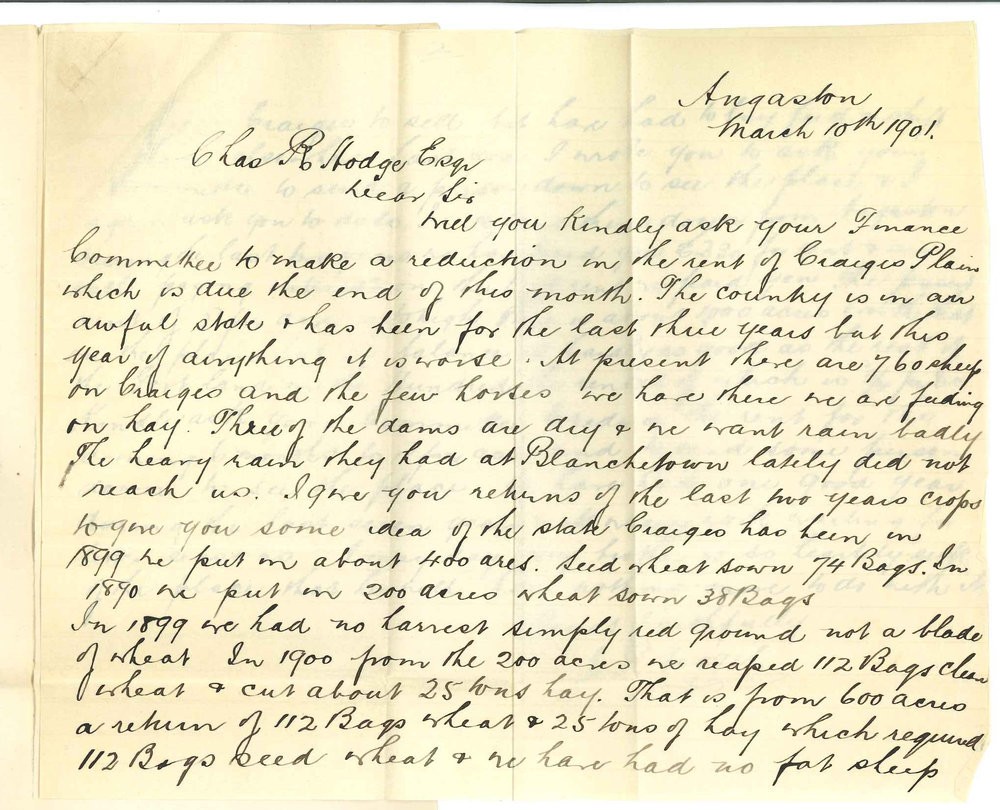 Angaston
March 10th 1901.
Chas R Hodge Esqr
Dear Sir
Will you Kindly ask your Finance
Committee to make a reduction in the rent of Craigies Plain
which is due the end of this month. The country is in an
awful state & has been for the last three years but this
year if anything it is worse. At present there are 760 sheep
on Craigies and the few horses we have there we are feeding
on hay. Three of the dams are dry & we want rain badly
The heavy rain they had at Blanchetown lately did not
reach us. I give you returns of the last two years crops
to give you some idea of the state Craigies has been in
1899 we put in about 400 acres. Seed wheat sown 74 Bags. In
1890 we put in 200 acres wheat sown 38 Bags
In 1899 we had no harvest simply red ground not a blade
of wheat In 1900 from the 200 acres we reaped 112 Bags clean
wheat & cut about 25 tons hay. That is from 600 acres
a return of 112 Bags wheat & 25 tons of hay which required
112 Bags seed wheat & we have had no fat sheep